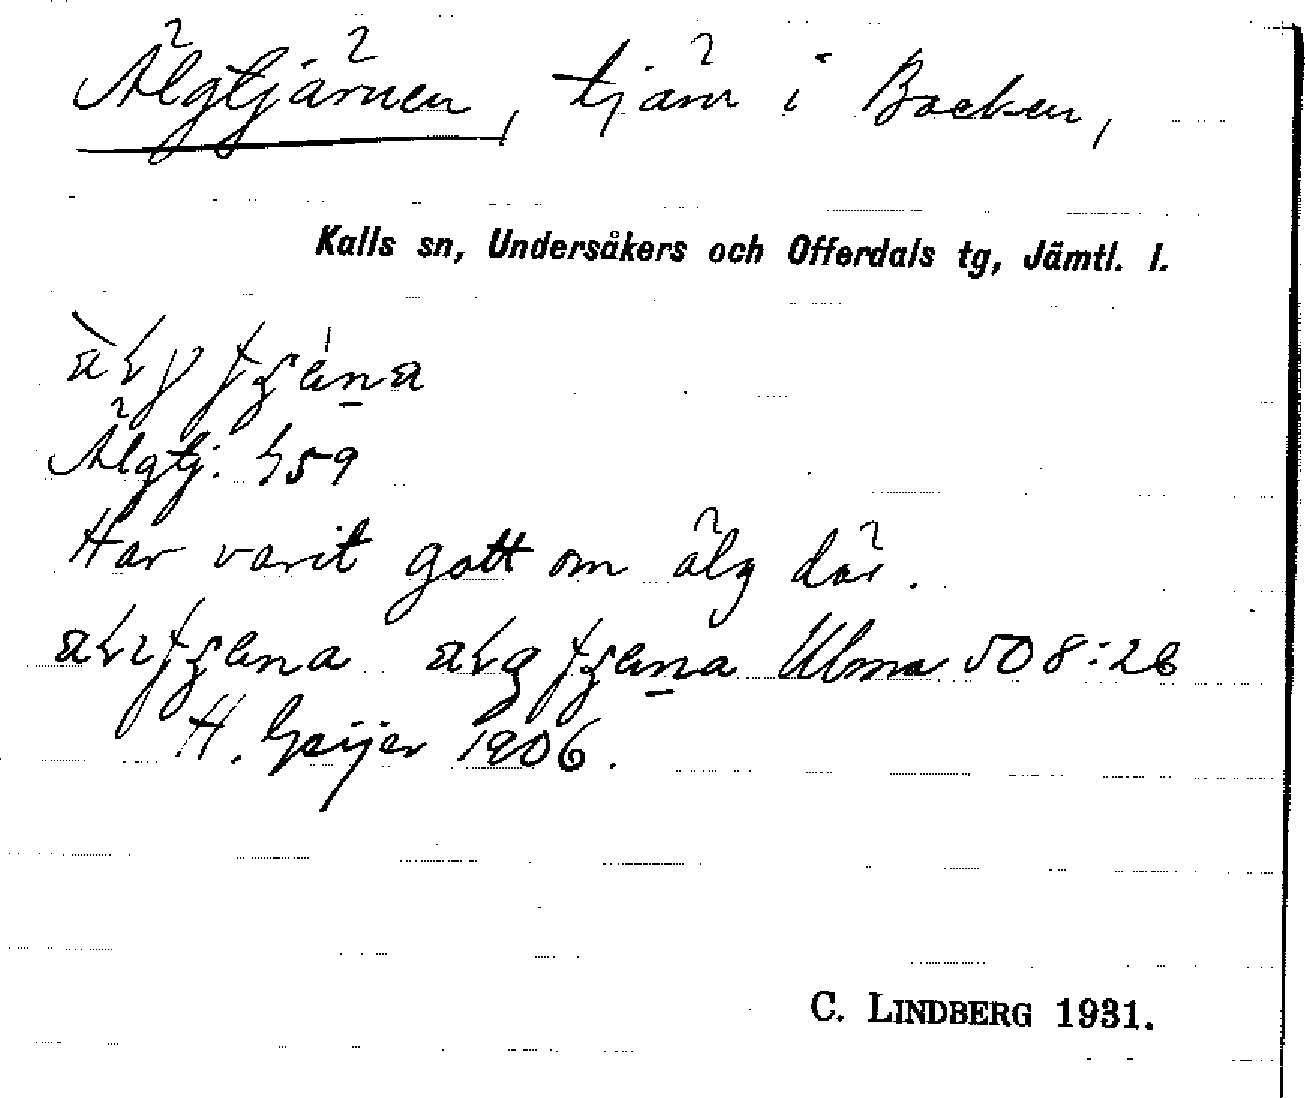 Älgtjärnen, tjärn i Backen,
Kalls sn, Undersåkers och Offerdals tg, Jämtl. l.
Älgtj. h59
Har varit gott om älg där.
Ulma 508:26
H. Geijer 1906.
C. LINDBERG 1931.